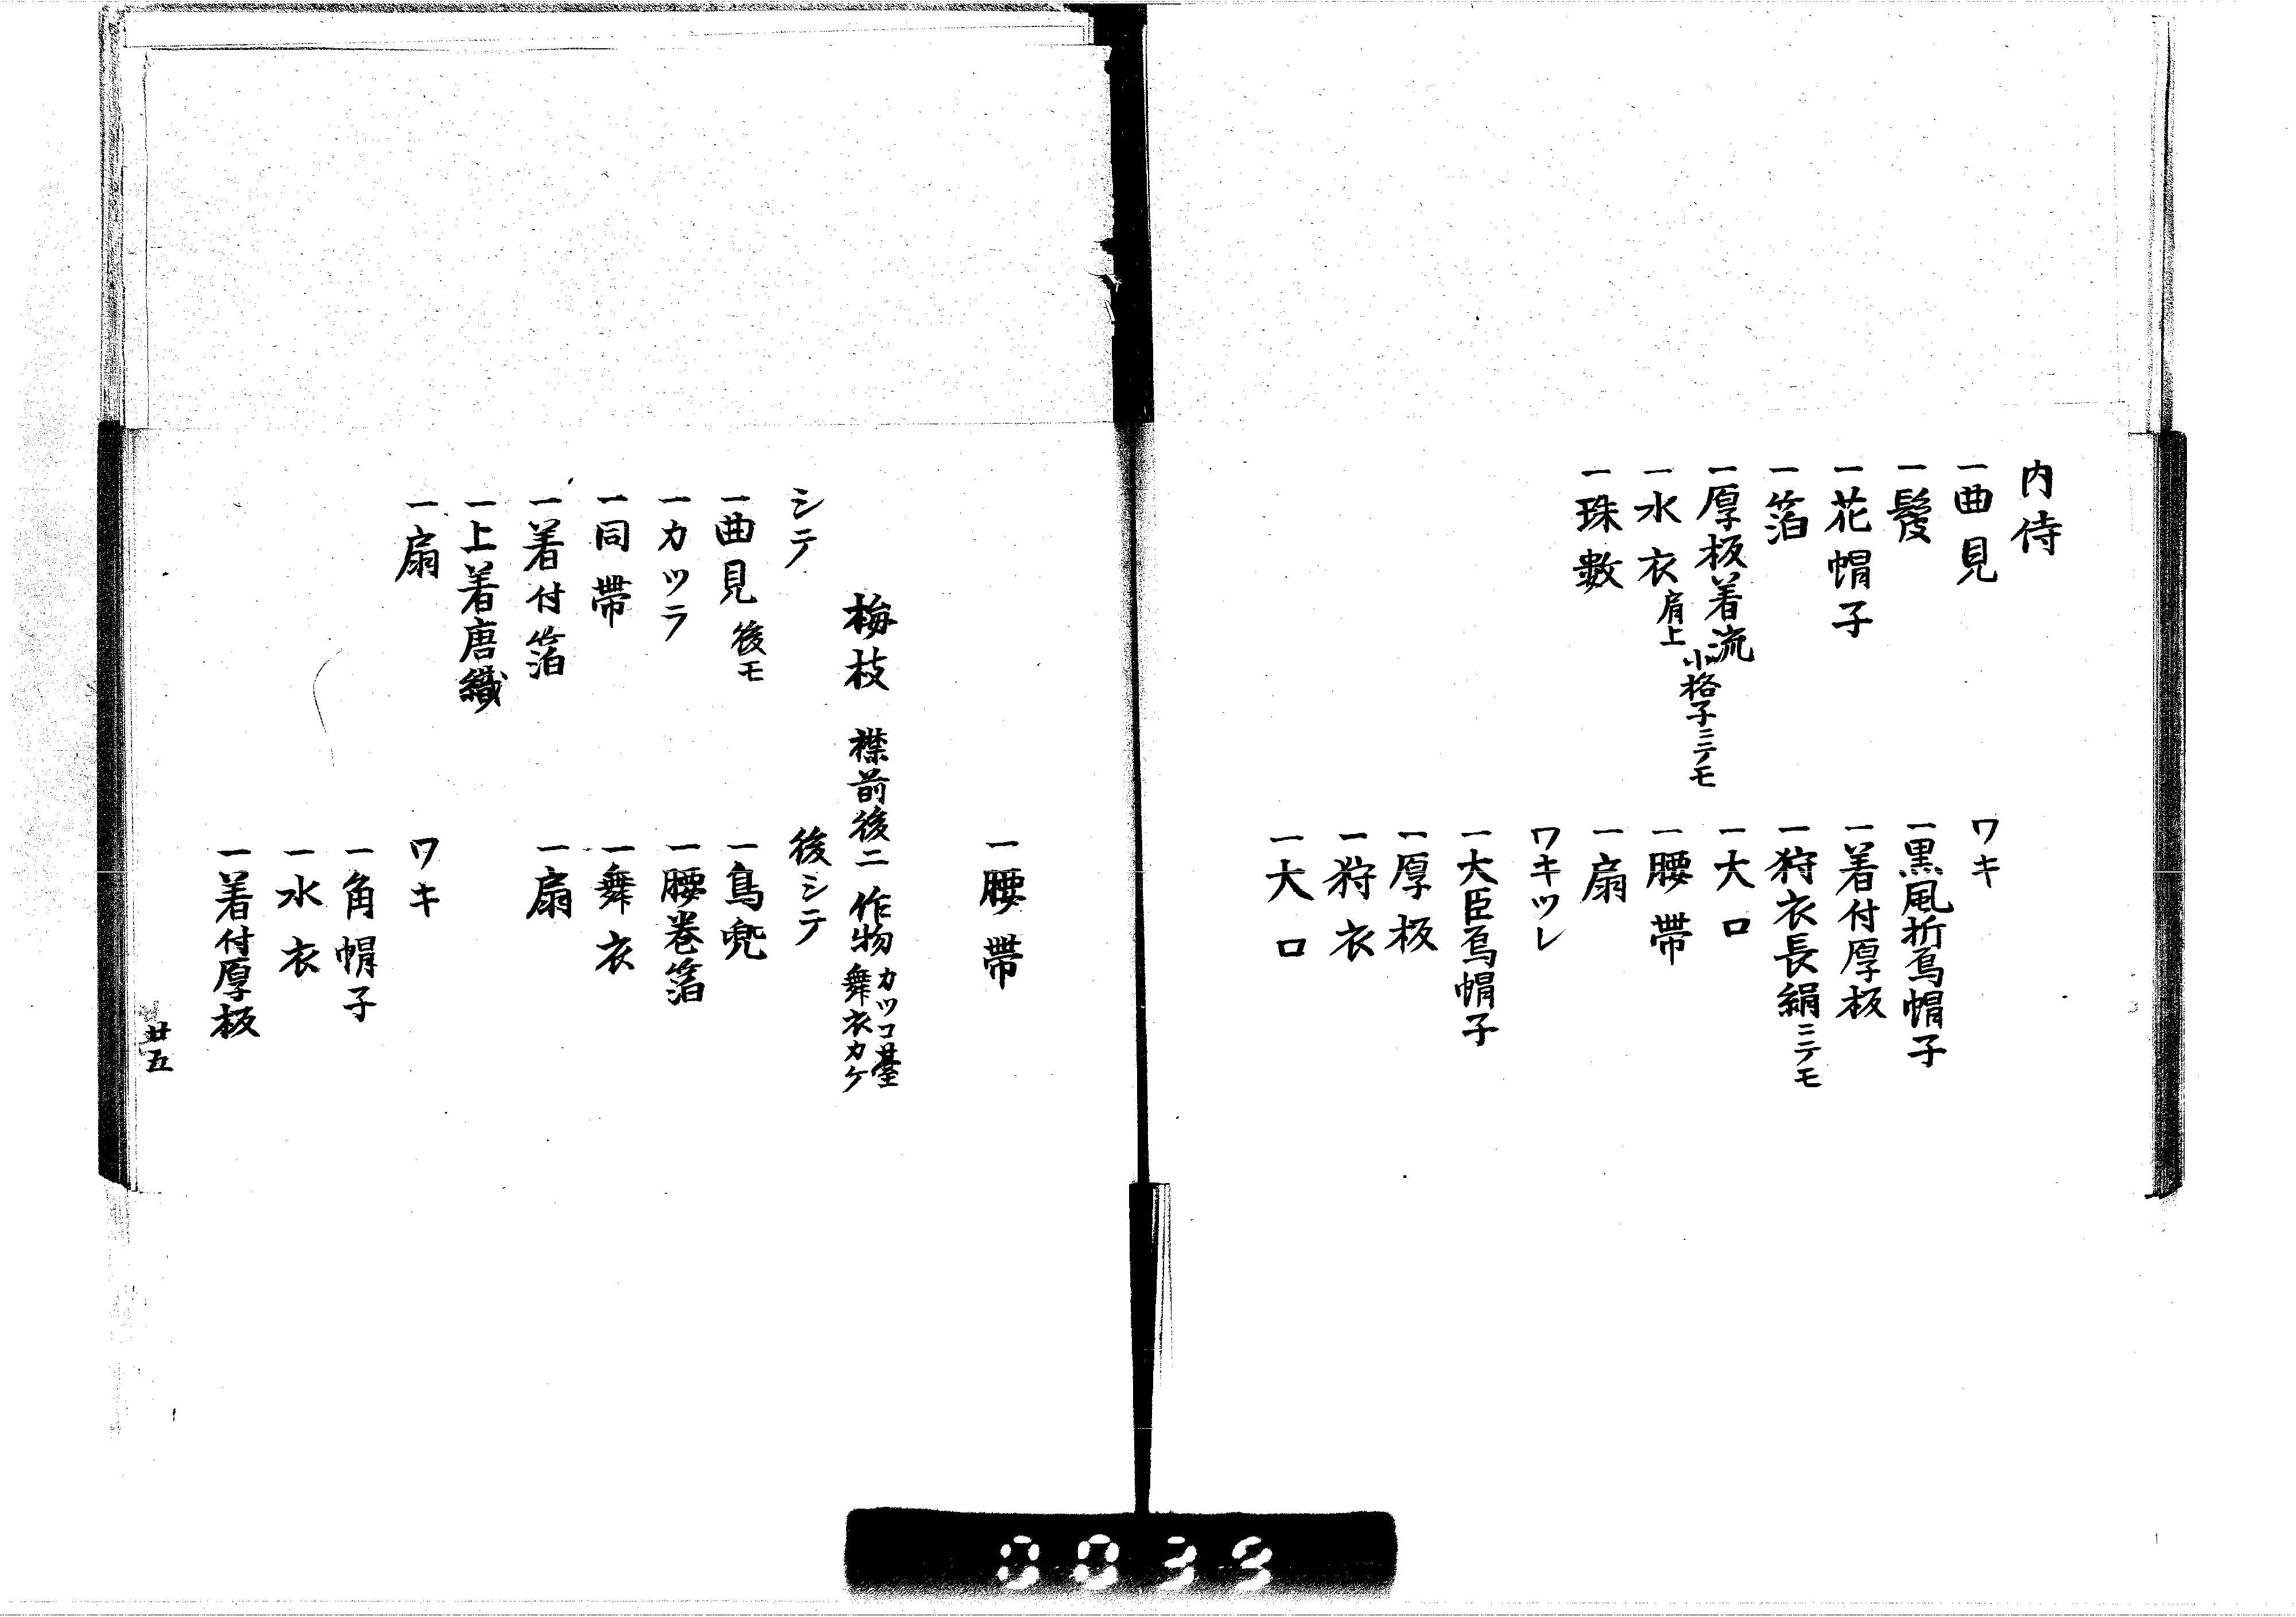 内侍
一曲見
一鬘
一花帽子
一箔
一厚板着流
小格子ニテモ
一水衣肩上
一珠數
ワキ
一黒風折烏帽子
一着付厚板
一狩衣長絹ニテモ
一大口
一腰帯
一扇
ワキツレ
一大臣烏帽子
一厚板
一狩衣
一大口
一腰帯
梅枝 襟前後二 作物カツコ臺
舞衣カケ
シテ
一曲見後モ
一カツラ
一同帯
一着付箔
一上着唐織
一扇
後シテ
一鳥兜
一腰巻箔
一舞衣
一扇
ワキ
一角帽子
一水衣
一着付厚板
廿五
0033